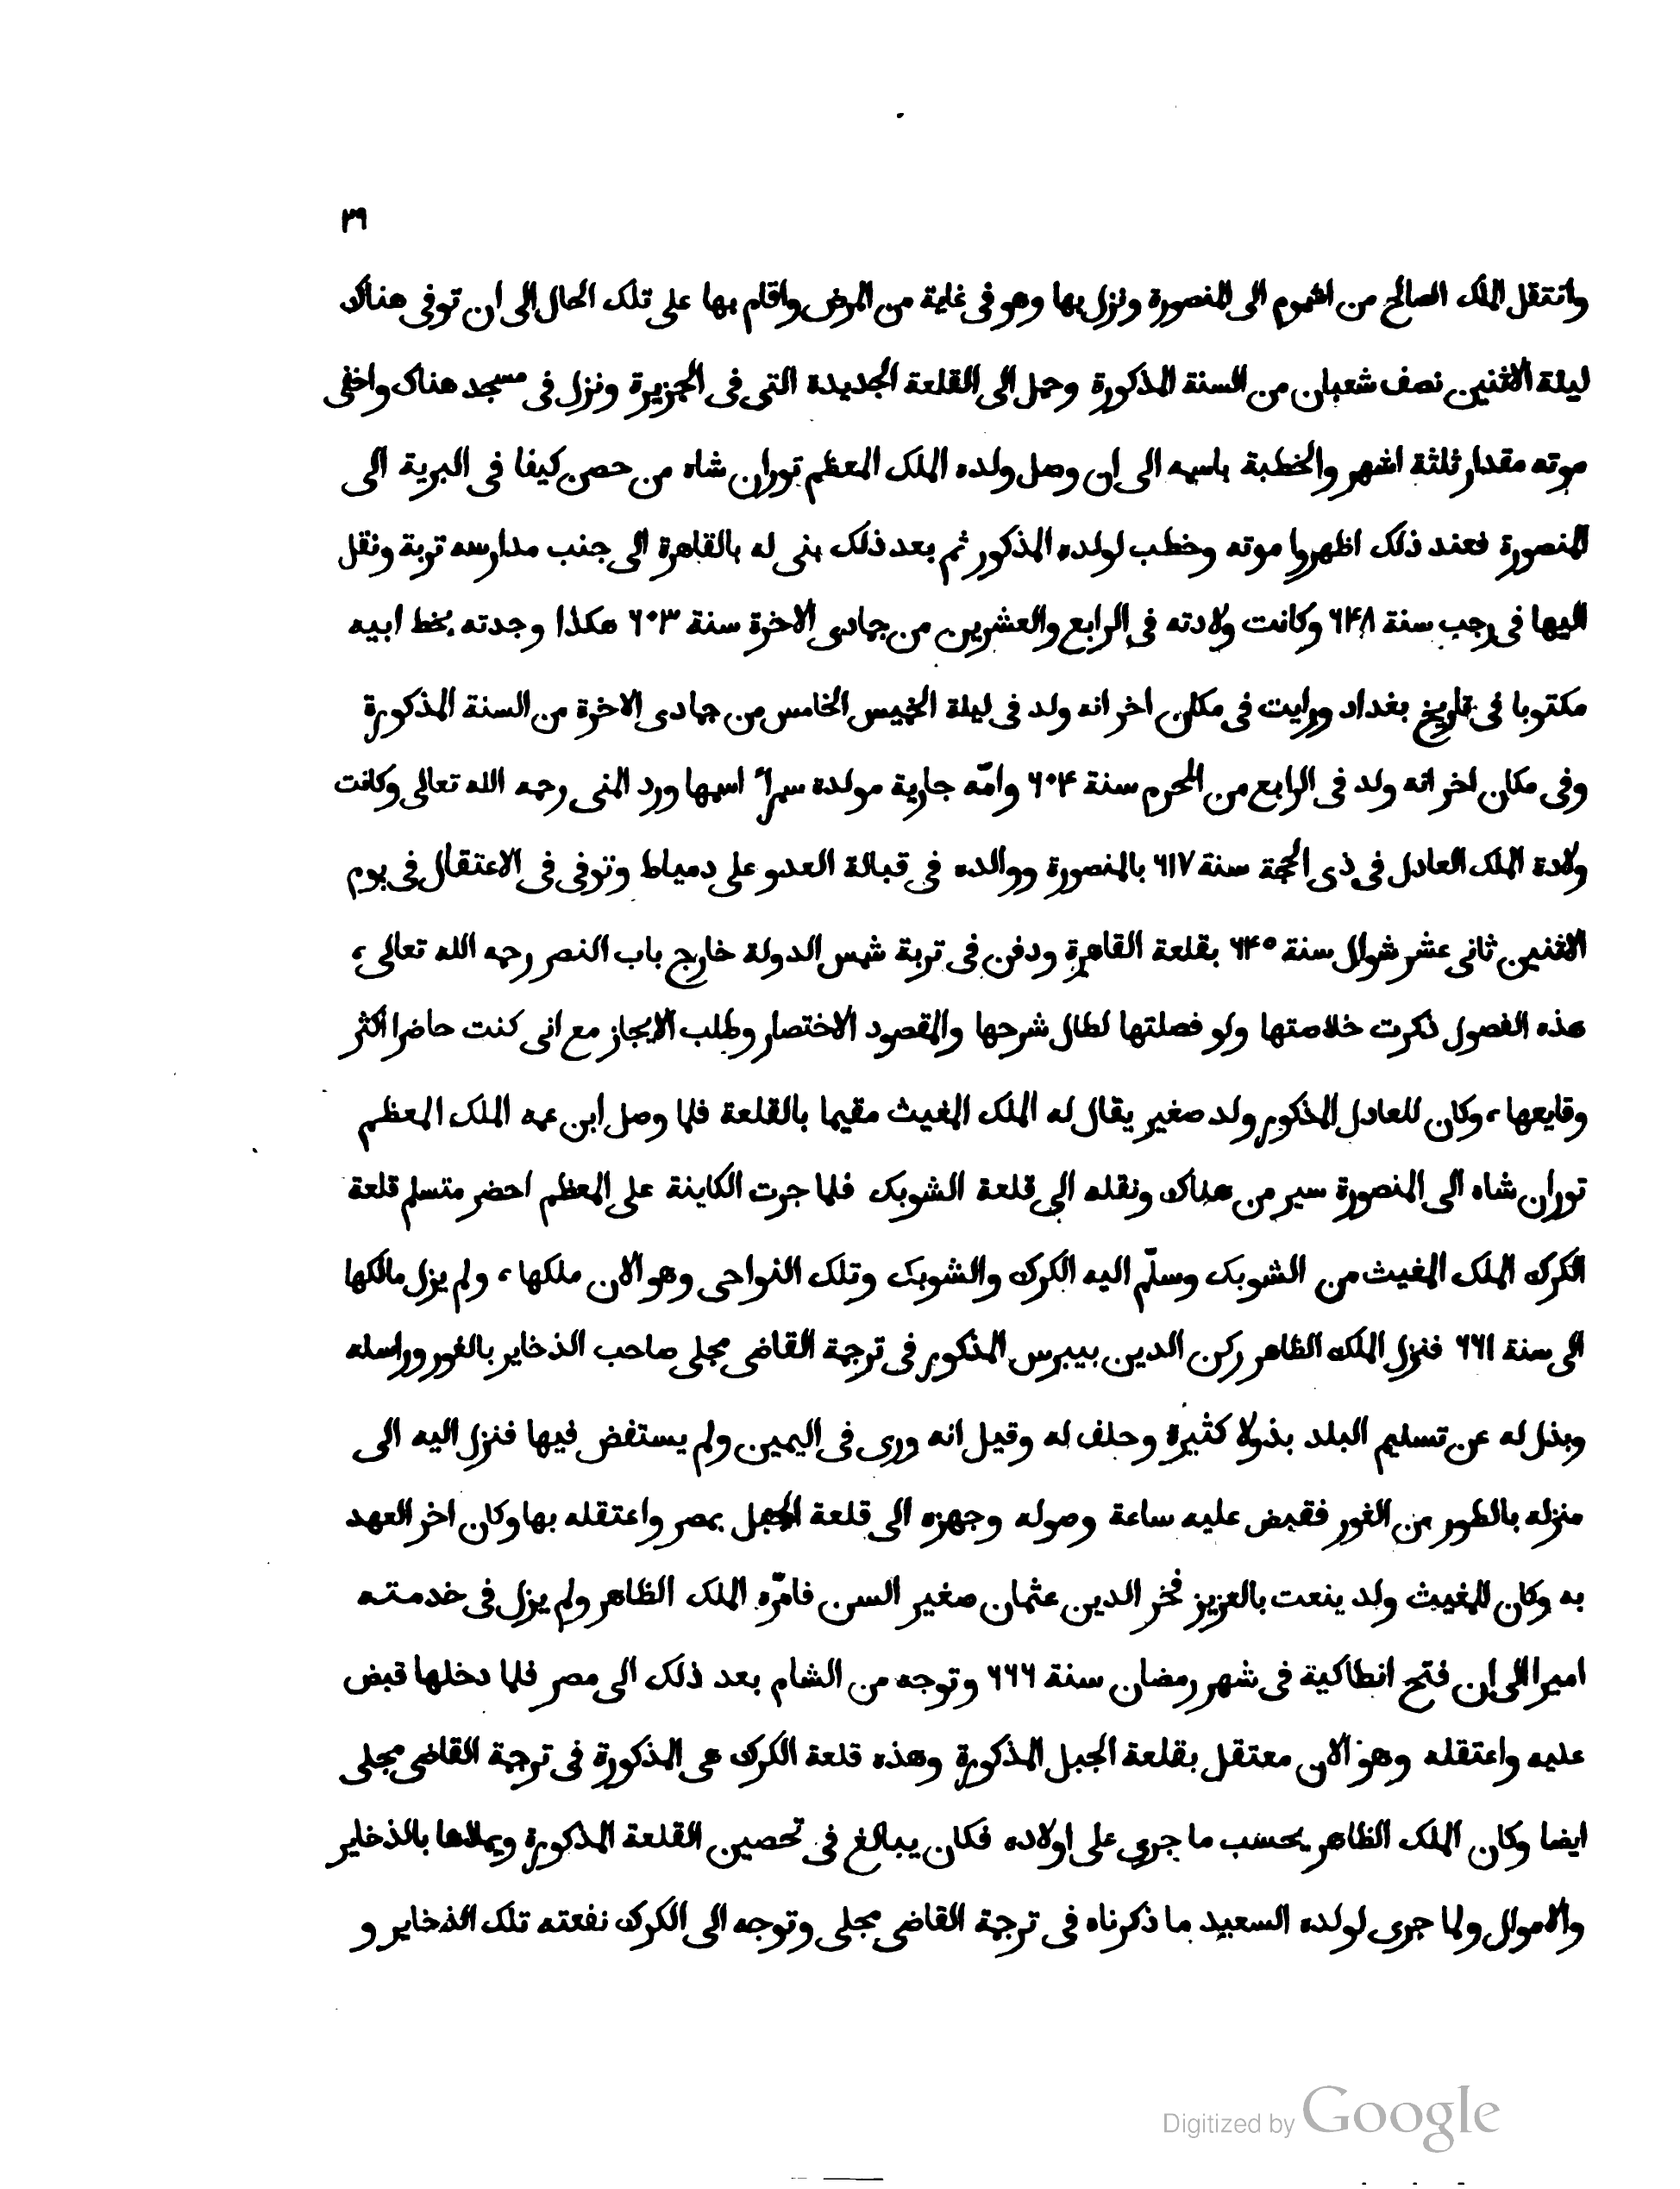 ٣٩
وانتقل الملك الصالح من اشموم الى المنصورة ونزل بها وهو فى غاية من المرض واقام بها على تلك الحال الى ان توفى هناك
ليلة الاثنين نصف شعبان من السنة المذكورة وحمل الى القلعة الجديدة التى فى الجزيرة ونزل فى مسجد هناك واخفى
موته مقدار ثلثة اشهر والخطبة باسمه الى ان وصل ولده الملك المعظم توران شاه من حصن كيفا فى البرية الى
المنصورة فعند ذلك اظهروا موته وخطب لولده المذكور ثم بعد ذلك بنى له بالقاهرة الى جنب مدارسه تربة ونقل
اليها فى رجب سنة ٦٤٨ وكانت ولادته فى الرابع والعشرين من جمادى الاخرة سنة ٦٠٣ هكذا وجدته بخط ابيه
مكتوبا فى تاريخ بغداد ورايت فى مكان اخر انه ولد فى ليلة الخميس الخامس من جمادى الاخرة من السنة المذكورة
وفى مكان اخر انه ولد فى الرابع من المحرم سنة ٦٠٤ وامّه جارية مولدة سمراء اسمها ورد المنى رحمه الله تعالى وكانت
ولادة الملك العادل فى ذى الحجة سنة ٦١٧ بالمنصورة ووالده فى قبالة العدو على دمياط وتوفى فى الاعتقال فى يوم
الاثنين ثانى عشر شوال سنة ٦٤٥ بقلعة القاهرة ودفن فى تربة شمس الدولة خارج باب النصر رحمه الله تعالى،
هذه الفصول ذكرت خلاصتها ولو فصلتها لطال شرحها والمقصود الاختصار وطلب الايجاز مع انى كنت حاضرا اكثر
وقايعها، وكان للعادل المذكور ولد صغير يقال له الملك المغيث مقيما بالقلعة فلما وصل ابن عمه الملك المعظم
توران شاه الى المنصورة سير من هناك ونقله الى قلعة الشوبك فلما جرت الكاينة على المعظم احضر متسلم قلعة
الكرك الملك المغيث من الشوبك وسلّم اليه الكرك والشوبك وتلك النواحى وهو الان ملكها، ولم يزل مالكها
الى سنة ٦٦١ فنزل الملك الظاهر ركن الدين بيبرس المذكور فى ترجمة القاضى مجلى صاحب الذخاير بالغور وراسله
وبذل له عن تسليم البلد بذولا كثيرة وحلف له وقيل انه ورى فى اليمين ولم يستفض فيها فنزل اليه الى
منزله بالطور من الغور فقبض عليه ساعة وصوله وجهزه الى قلعة الجبل بمصر واعتقله بها وكان اخر العهد
به وكان للمغيث ولد ينعت بالعزيز فخر الدين عثمان صغير السن فامّره الملك الظاهر ولم يزل فى خدمته
اميرا الى ان فتح انطاكية فى شهر رمضان سنة ٦٦٦ وتوجه من الشام بعد ذلك الى مصر فلما دخلها قبض
عليه واعتقله وهو الان معتقل بقلعة الجبل المذكورة وهذه قلعة الكرك هى المذكورة فى ترجمة القاضى مجلى
ايضا وكان الملك الظاهر يحسب ما جرى على اولاده فكان يبالغ فى تحصين القلعة المذكورة ويملاها بالذخاير
والاموال ولما جرى لولده السعيد ما ذكرناه فى ترجمة القاضى مجلى وتوجه الى الكرك نفعته تلك الذخاير و
Digitized by Google